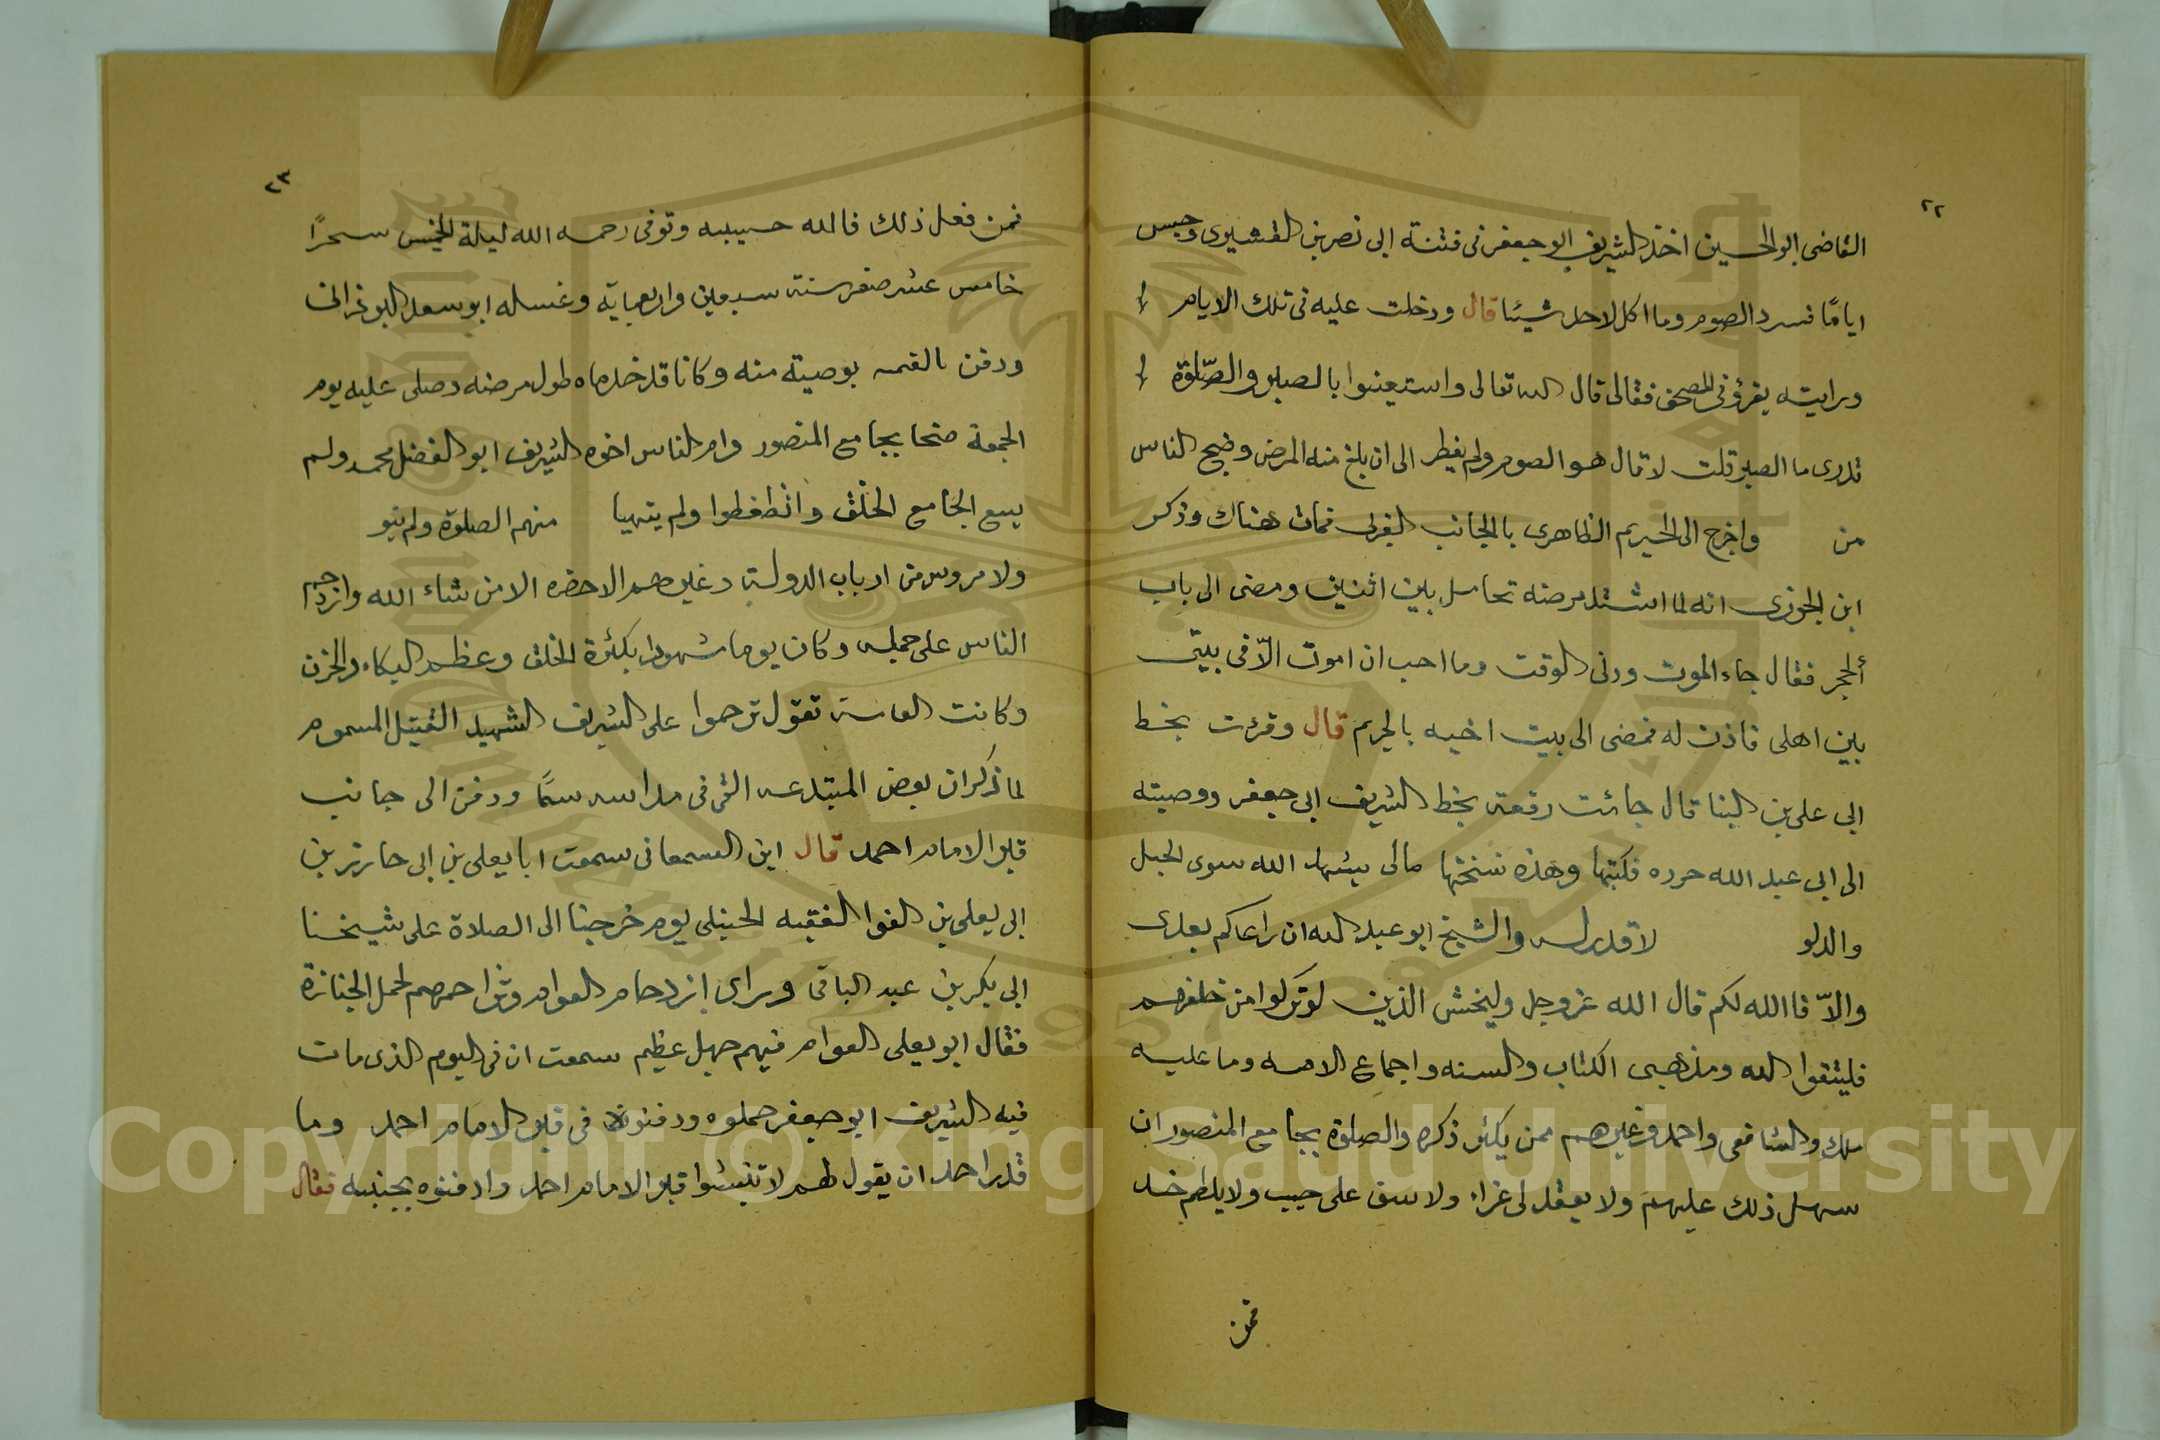 ٢٢
القاضى ابو الحسين اخذ الشريف ابو جعفر فى فتنة ابى نصر بن القشيرى وحبس
اياما فسرد الصوم وما اكل لاحد شيئا قال ودخلت عليه فى تلك الايام
ورايته يقرؤ فى المصحف فقال لى قال الله تعالى واستعينوا بالصبر والصّلوة
تدرى ما الصبر قلت لا قال هو الصوم ولم يفطر الى ان بلغ منه المرض وضج الناس
من واخرج الى الحريم الظاهرى بالجانب الغربى فمات هناك وذكر
ابن الجوزى انه لما اشتد مرضه تحامل بين اثنين ومضى الى باب
الحجر فقال جاء الموت ودنى الوقت وما احب ان اموت الّا فى بيتى
بين اهلى فاذن له فمضى الى بيت اخيه بالحريم قال وقرئت بخط
ابى على بن البنا قال جائت رقعة بخط الشريف ابى جعفر ووصيته
الى ابى عبد الله حرده فكتبها وهذه نسختها مالى يشهد الله سوى الحبل
والدلو لا قدر له والشيخ ابو عبد الله ان راعاكم بعدى
والاّ فاالله لكم قال الله عز وجل وليخش الذين لو تركوا من خلفهم
فليتقوا الله ومذهبى الكتاب والسنه واجماع الامه وما عليه
ملك والشافعى واحمد وغيرهم ممن يكثر ذكره والصلوة بجامع المنصور ان
سهل ذلك عليهم ولا يعقد لى عزاء ولا يشق على جيب ولا يلطم خد
فمن
٢٣
فمن فعل ذلك فالله حسيبه وتوفى رحمه الله ليلة الخميس سحرًا
خامس عشر صفر سنة سبعين واربعماية وغسله ابو سعد البوغرانى
ودفن بوصيته منه وكانا قد خدماه طول مرضه وصلى عليه يوم
الجمعة ضحا بجامع المنصور وام الناس اخوه الشريف ابو الفضل محمد ولم
يسع الجامع الخلق وانضغطوا ولم يتهيا منهم الصلوة ولم يبق
ولا مروس من ارباب الدولة وغيرهم الا حضره الا من شاء الله وازدحم
الناس على حمله وكان يوما مشهودا بكثرة الخلق وعظم البكاء والحزن
وكانت العامة تقول ترحموا على الشريف الشهيد القتيل المسموم
لما ذكر ان بعض المبتدعه القى فى مداسه سمًا ودفن الى جانب
قبر الامام احمد قال ابن السمعانى سمعت ابا يعلى بن ابى حازم بن
ابى يعلى بن الفوا الفقيه الحنبلى يوم خرجنا الى الصلاة على شيخنا
ابى بكر بن عبد الباقى وراى ازدحام العوام وتزاحمهم لحمل الجنازة
فقال ابو يعلى العوام فيهم جهل عظيم سمعت ان فى اليوم الذى مات
فيه الشريف ابو جعفر حملوه ودفنوه فى قبر الامام احمد وما
قدر احد ان يقول لهم لا تنبشوا قبر الامام احمد وادفنوه بجنبه فقال
Copyright © King Saud University